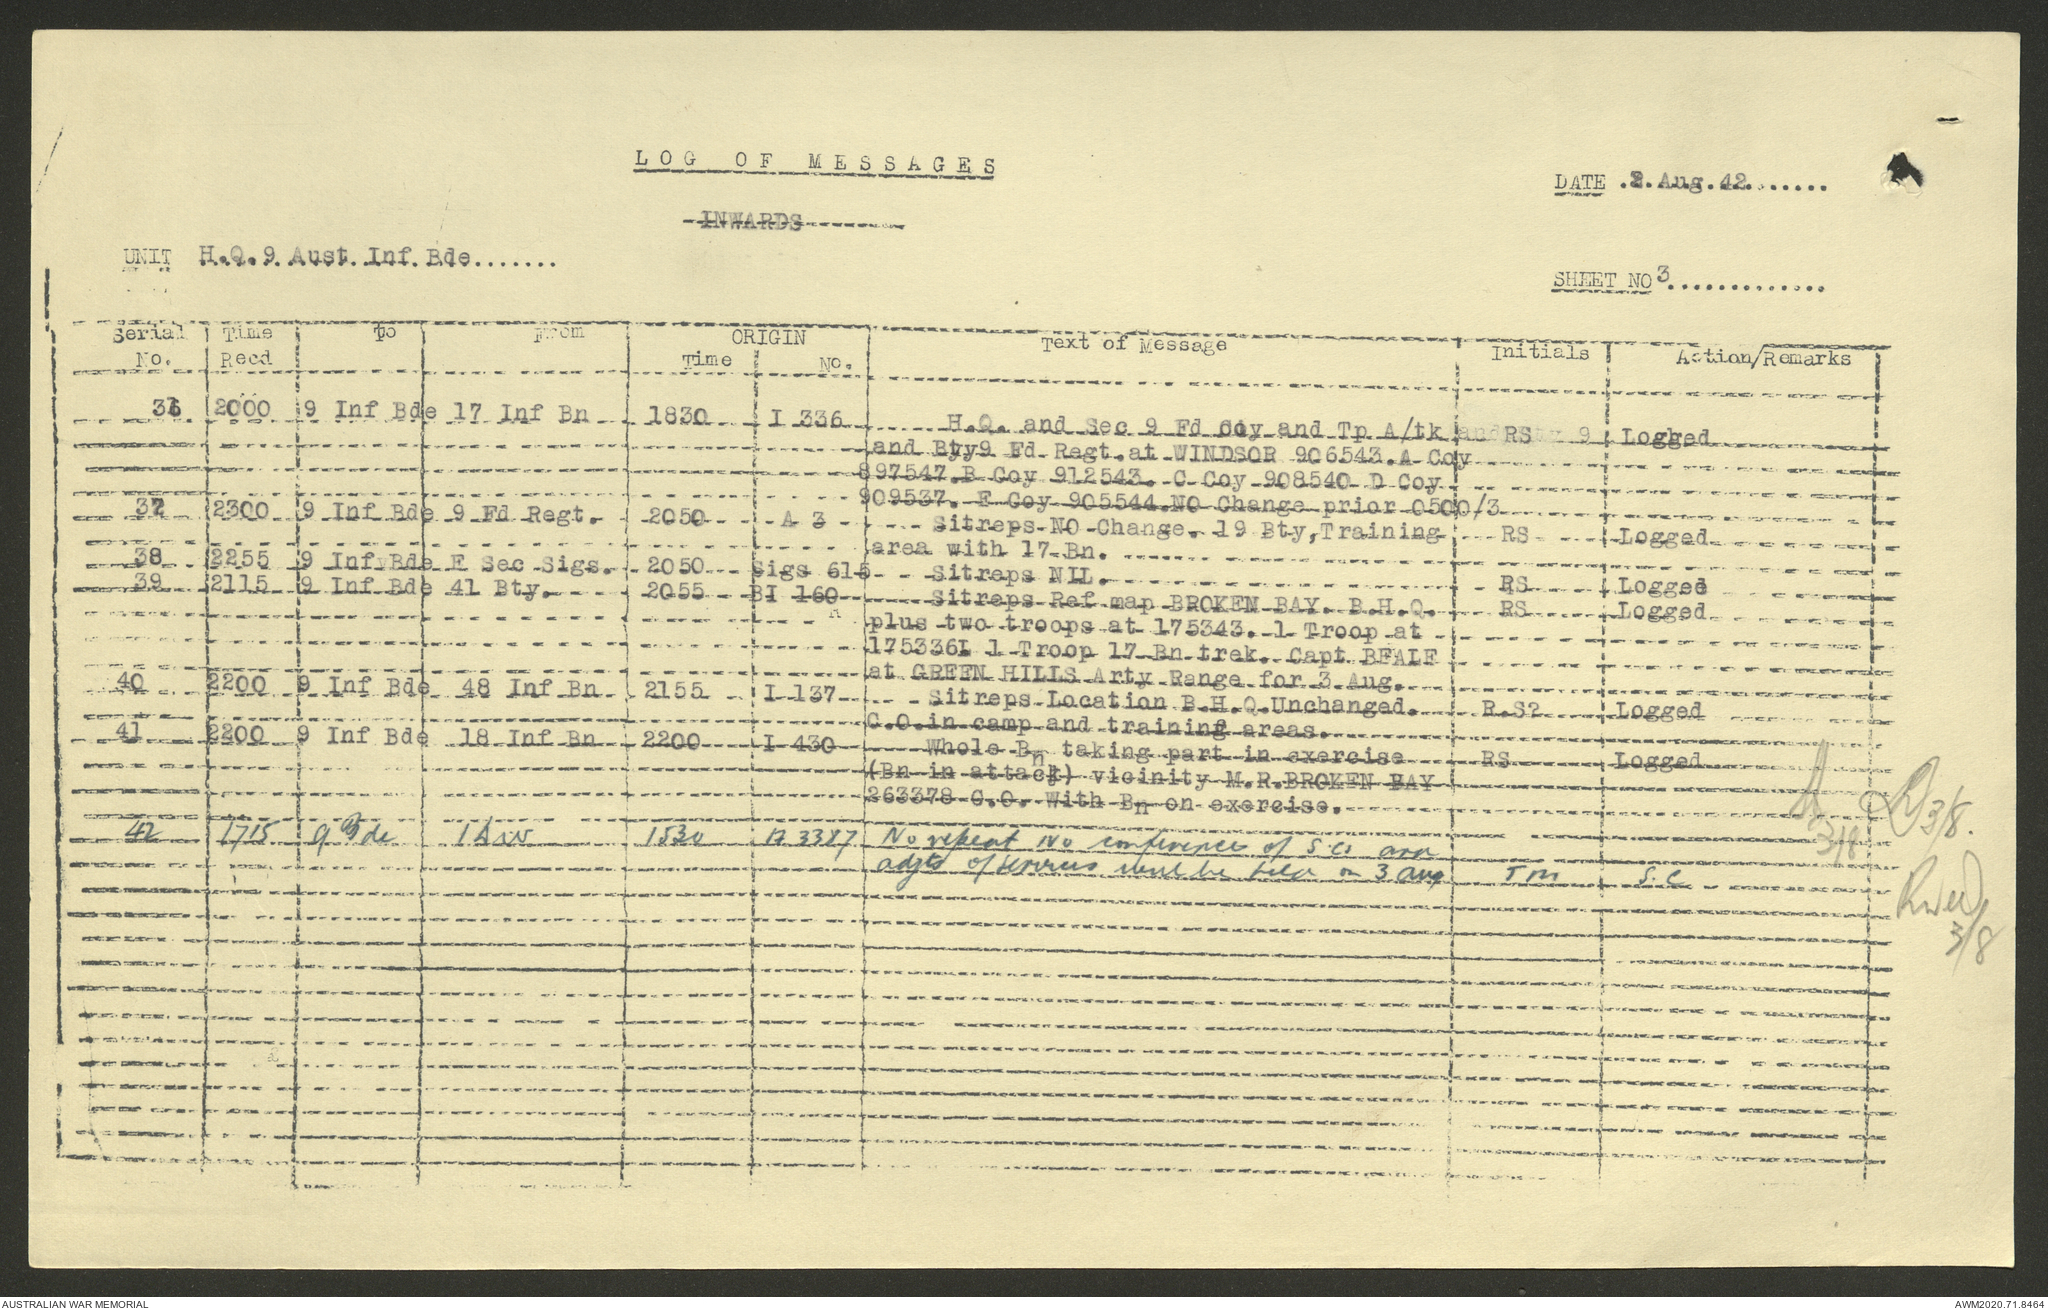 LOG OF MESSAGES
INWARDS
DATE .2.Aug.42.......
UNIT H.Q.9 Aust Inf Bde.......
SHEET NO 3.............
Serial No. Time Recd To From ORIGIN Time No. Text of Message Initials Action/Remarks
36 2000 9 Inf Bde 17 Inf Bn 1830 I 336 H.Q. and Sec 9 Fd Coy and Tp A/tk RS Logged
and Bty9 Fd Regt.at WINDSOR 906543.A Coy
897547.B Coy 912543. C Coy 908540 D Coy
909537. E Coy 905544.NO Change prior 0500/3
37 2300 9 Inf Bde 9 Fd Regt. 2050 A 3 Sitreps NO Change. 19 Bty,Training RS Logged
area with 17 Bn.
38 2255 9 Inf Bde E Sec Sigs. 2050 Sigs 615 Sitreps NIL. RS Logged
39 2115 9 Inf Bde 41 Bty. 2055 BI 160 Sitreps Ref map BROKEN BAY. B.H.Q. RS Logged
plus two troops at 175343. 1 Troop at
175336L 1 Troop 17 Bn trek. Capt BEALE
at GREEN HILLS Arty Range for 3 Aug.
40 2200 9 Inf Bde 48 Inf Bn 2155 I 137 Sitreps Location B.H.Q.Unchanged. R.S? Logged
C.O.in camp and training areas.
41 2200 9 Inf Bde 18 Inf Bn 2200 I 430 Whole Bn taking part in exercise RS Logged
(Bn in attack) vicinity M.R.BROKEN BAY
263378 C.O. With Bn on exercise.
42 1715 9 Bde 1 Div 1530 A 3387 No repeat No conference of S.Cs and
adjts of services will be held on 3 Aug TM S.C
3/8
3/8.
3/8
AUSTRALIAN WAR MEMORIAL
AWM2020.71.8464